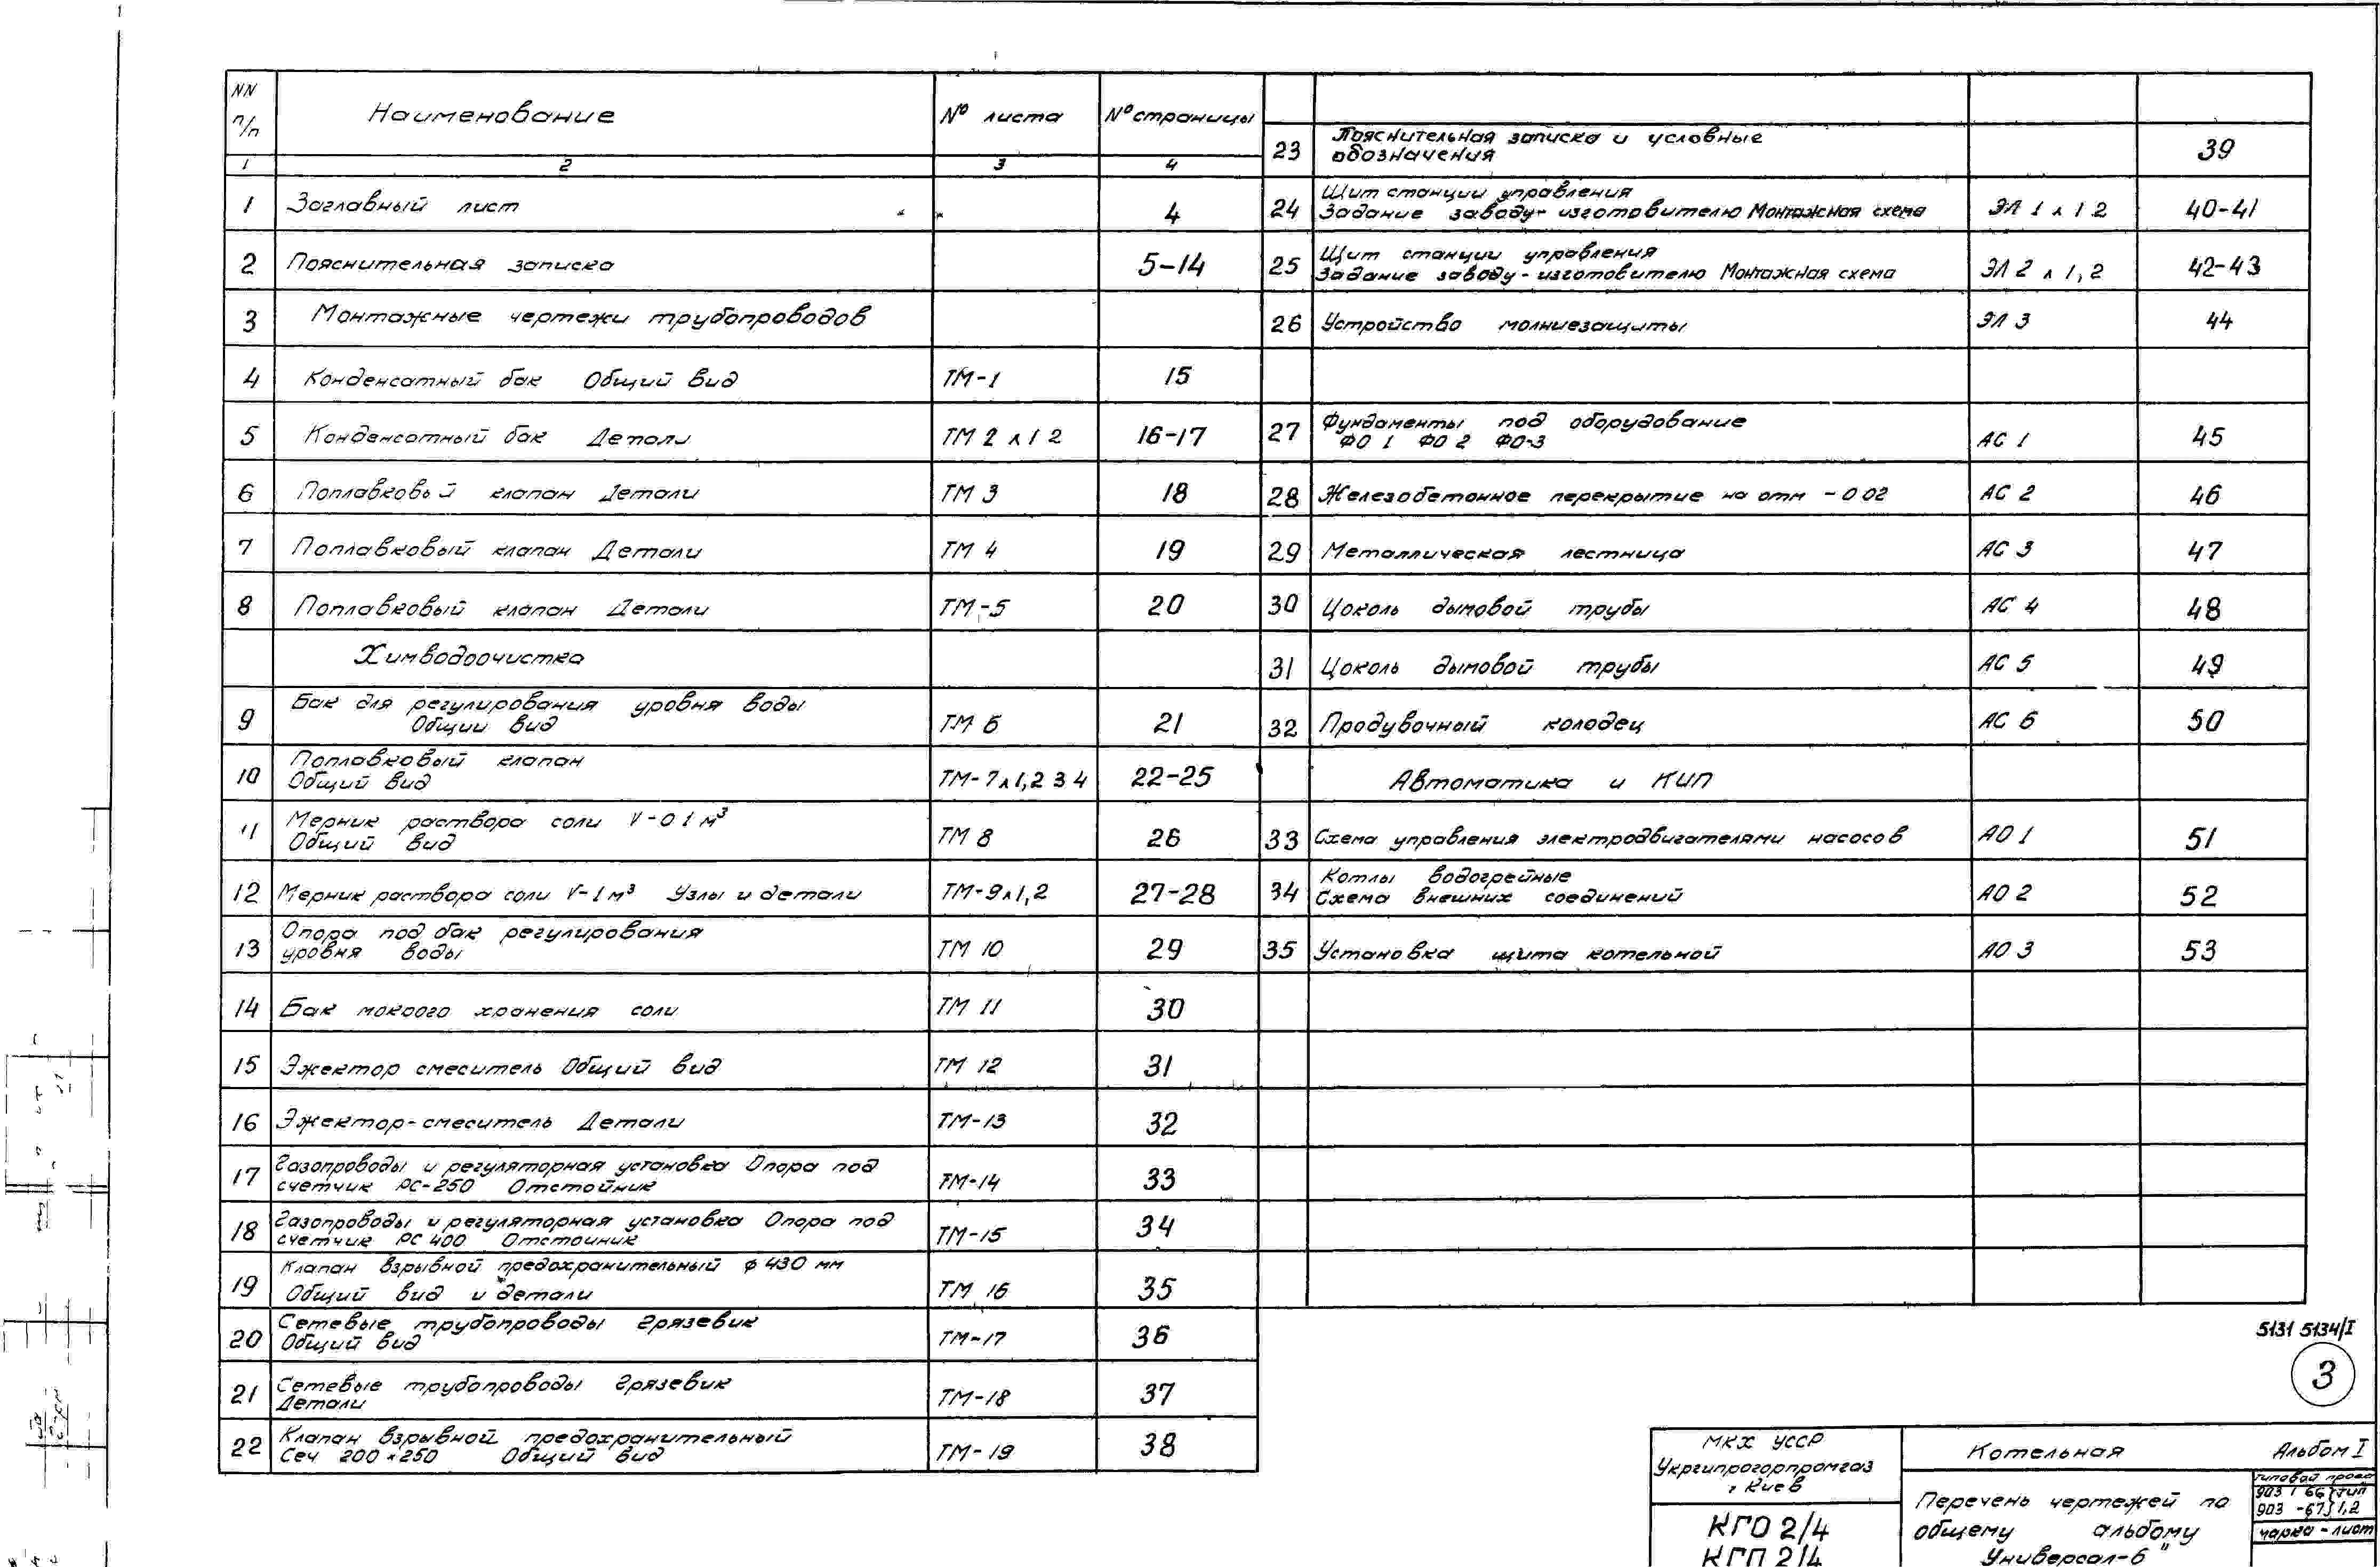 NN п/п Наименование № листа № страницы
1 2 3 4
1 Заглавный лист 4
2 Пояснительная записка 5-14
3 Монтажные чертежи трубопроводов
4 Конденсатный бак Общий вид ТМ-1 15
5 Конденсатный бак Детали ТМ 2 л 1 2 16-17
6 Поплавковый клапан Детали ТМ 3 18
7 Поплавковый клапан Детали ТМ 4 19
8 Поплавковый клапан Детали ТМ-5 20
Химводоочистка
9 Бак для регулирования уровня воды
Общий вид ТМ 6 21
10 Поплавковый клапан
Общий вид ТМ-7 л 1,2 3 4 22-25
11 Мерник раствора соли V-0 1 м³
Общий вид ТМ 8 26
12 Мерник раствора соли V-1 м³ Узлы и детали ТМ-9 л 1,2 27-28
13 Опора под бак регулирования
уровня воды ТМ 10 29
14 Бак мокрого хранения соли ТМ 11 30
15 Эжектор смеситель Общий вид ТМ 12 31
16 Эжектор-смеситель Детали ТМ-13 32
17 Газопроводы и регуляторная установка Опора под
счетчик РС-250 Отстойник ТМ-14 33
18 Газопроводы и регуляторная установка Опора под
счетчик РС 400 Отстоиник ТМ-15 34
19 Клапан взрывной предохранительный ф 430 мм
Общий вид и детали ТМ 16 35
20 Сетевые трубопроводы Грязевик
Общий вид ТМ-17 36
21 Сетевые трубопроводы Грязевик
Детали ТМ-18 37
22 Клапан взрывной предохранительный
Сеч 200 × 250 Общий вид ТМ-19 38
23 Пояснительная записка и условные
обозначения 39
24 Щит станции управления
Задание заводу-изготовителю Монтажная схема ЭЛ 1 л 1 2 40-41
25 Щит станции управления
Задание заводу-изготовителю Монтажная схема ЭЛ 2 л 1,2 42-43
26 Устройство молниезащиты ЭЛ 3 44
27 Фундаменты под оборудование
ФО 1 ФО 2 ФО-3 АС 1 45
28 Железобетонное перекрытие на отм -0 02 АС 2 46
29 Металлическая лестница АС 3 47
30 Цоколь дымовой трубы АС 4 48
31 Цоколь дымовой трубы АС 5 49
32 Продувочный колодец АС 6 50
Автоматика и КИП
33 Схема управления электродвигателями насосов АО 1 51
34 Котлы водогрейные
Схема внешних соединений АО 2 52
35 Установка щита котельной АО 3 53
5131 5134/I
3
МКХ УССР
Укргипрогорпромгаз
г Киев
КГО 2/4
КГП 2/4
Котельная Альбом I
Перечень чертежей по
общему альбому
Универсал-6"
903 1 66
903 -67 1,2
марка-лист